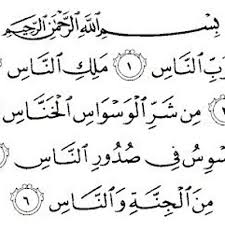 بِسْمِ اللَّهِ الرَّحْمَٰنِ الرَّحِيمِ
رَبِّ ٱلنَّاسِ ١ مَلِكِ ٱلنَّاسِ
مِن شَرِّ ٱلْوَسْوَاسِ ٱلْخَنَّاسِ
سْوِسُ فِى صُدُورِ ٱلنَّاسِ
مِنَ ٱلْجِنَّةِ وَٱلنَّاسِ ٦